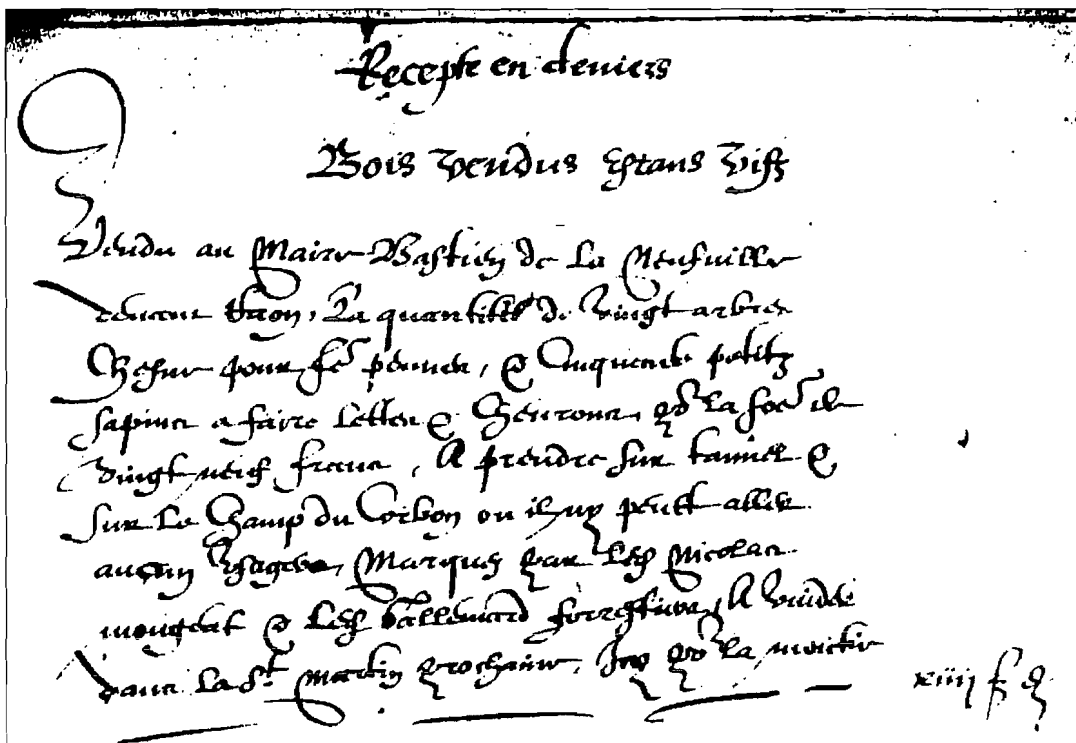 Recepte en deniers
Bois vendus estans vifz
Vendu au Maire Bastien de la Neufville
devant Raon, La quantité de vingt arbres
Chesne pour fe pennes, & Cinquante petitz
sapins a faire lettes & Chevrons, po la soe de
vingt neuf francs, A prendre sur tannel &
sur le Champ du Corbon ou il ny peult aller
aucun usager, Marques par Lesd Nicolas
mongeat & Lesd vallemard forestiers, A vuider
dans la St Martin prochaine, Icy po la moictie
xiiij f d